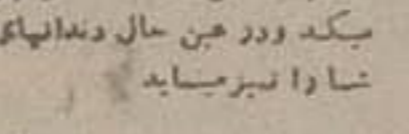 میکند ودر عین حال دندانهای
شما را نیز میساید